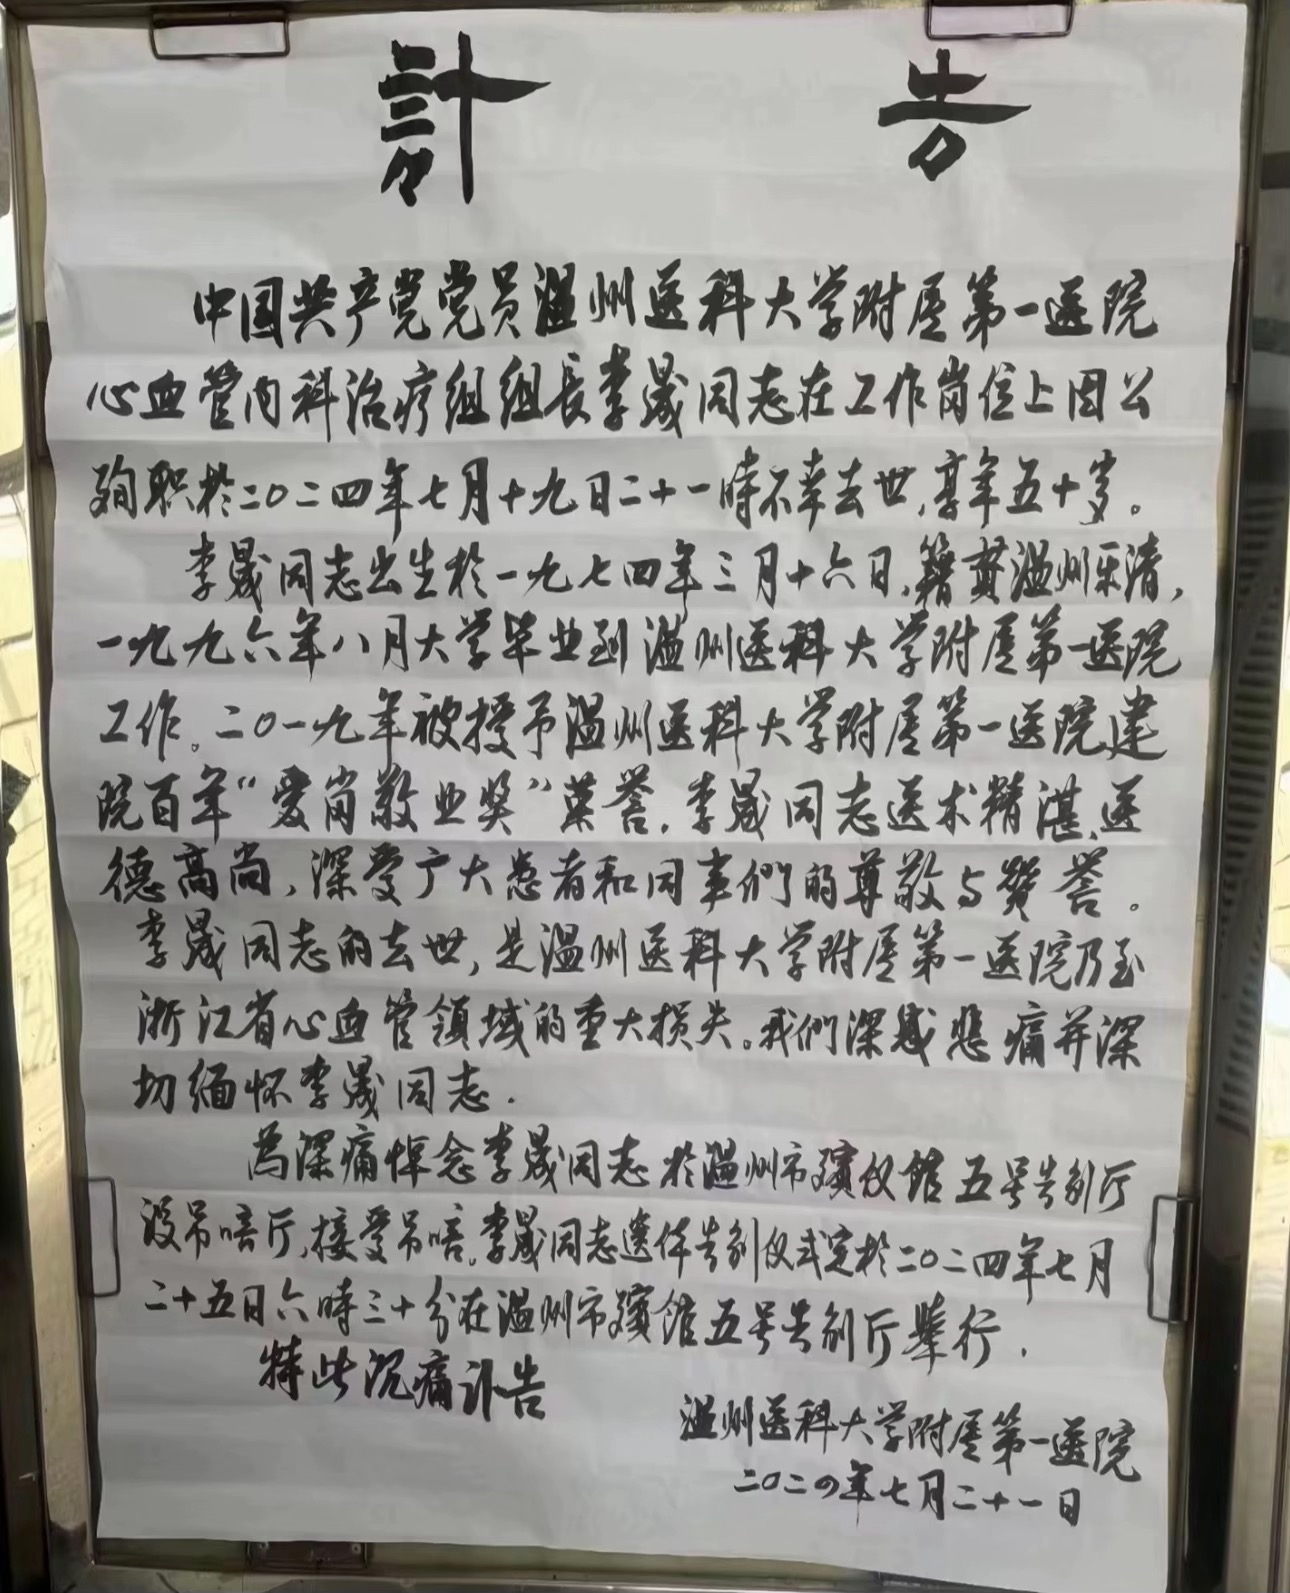 訃 告
中国共产党党员温州医科大学附属第一医院
心血管内科治疗组组長李晟同志在工作岗位上因公
殉职於二〇二四年七月十九日二十一時不幸去世,享年五十岁。
李晟同志出生於一九七四年三月十六日,籍贯温州乐清,
一九九六年八月大学毕业到温州医科大学附属第一医院
工作。二〇一九年被授予温州医科大学附属第一医院建
院百年“爱岗敬业奖”荣誉.李晟同志医术精湛、医
德高尚,深受广大患者和同事们的尊敬与赞誉。
李晟同志的去世,是温州医科大学附属第一医院乃至
浙江省心血管领域的重大损失。我们深感悲痛并深
切缅怀李晟同志.
為深痛悼念李晟同志於温州市殡仪馆五号告别厅
设吊唁厅,接受吊唁.李晟同志遗体告别仪式定於二〇二四年七月
二十五日六時三十分在温州市殡馆五号告别厅举行.
特此沉痛讣告
温州医科大学附属第一医院
二〇二四年七月二十一日